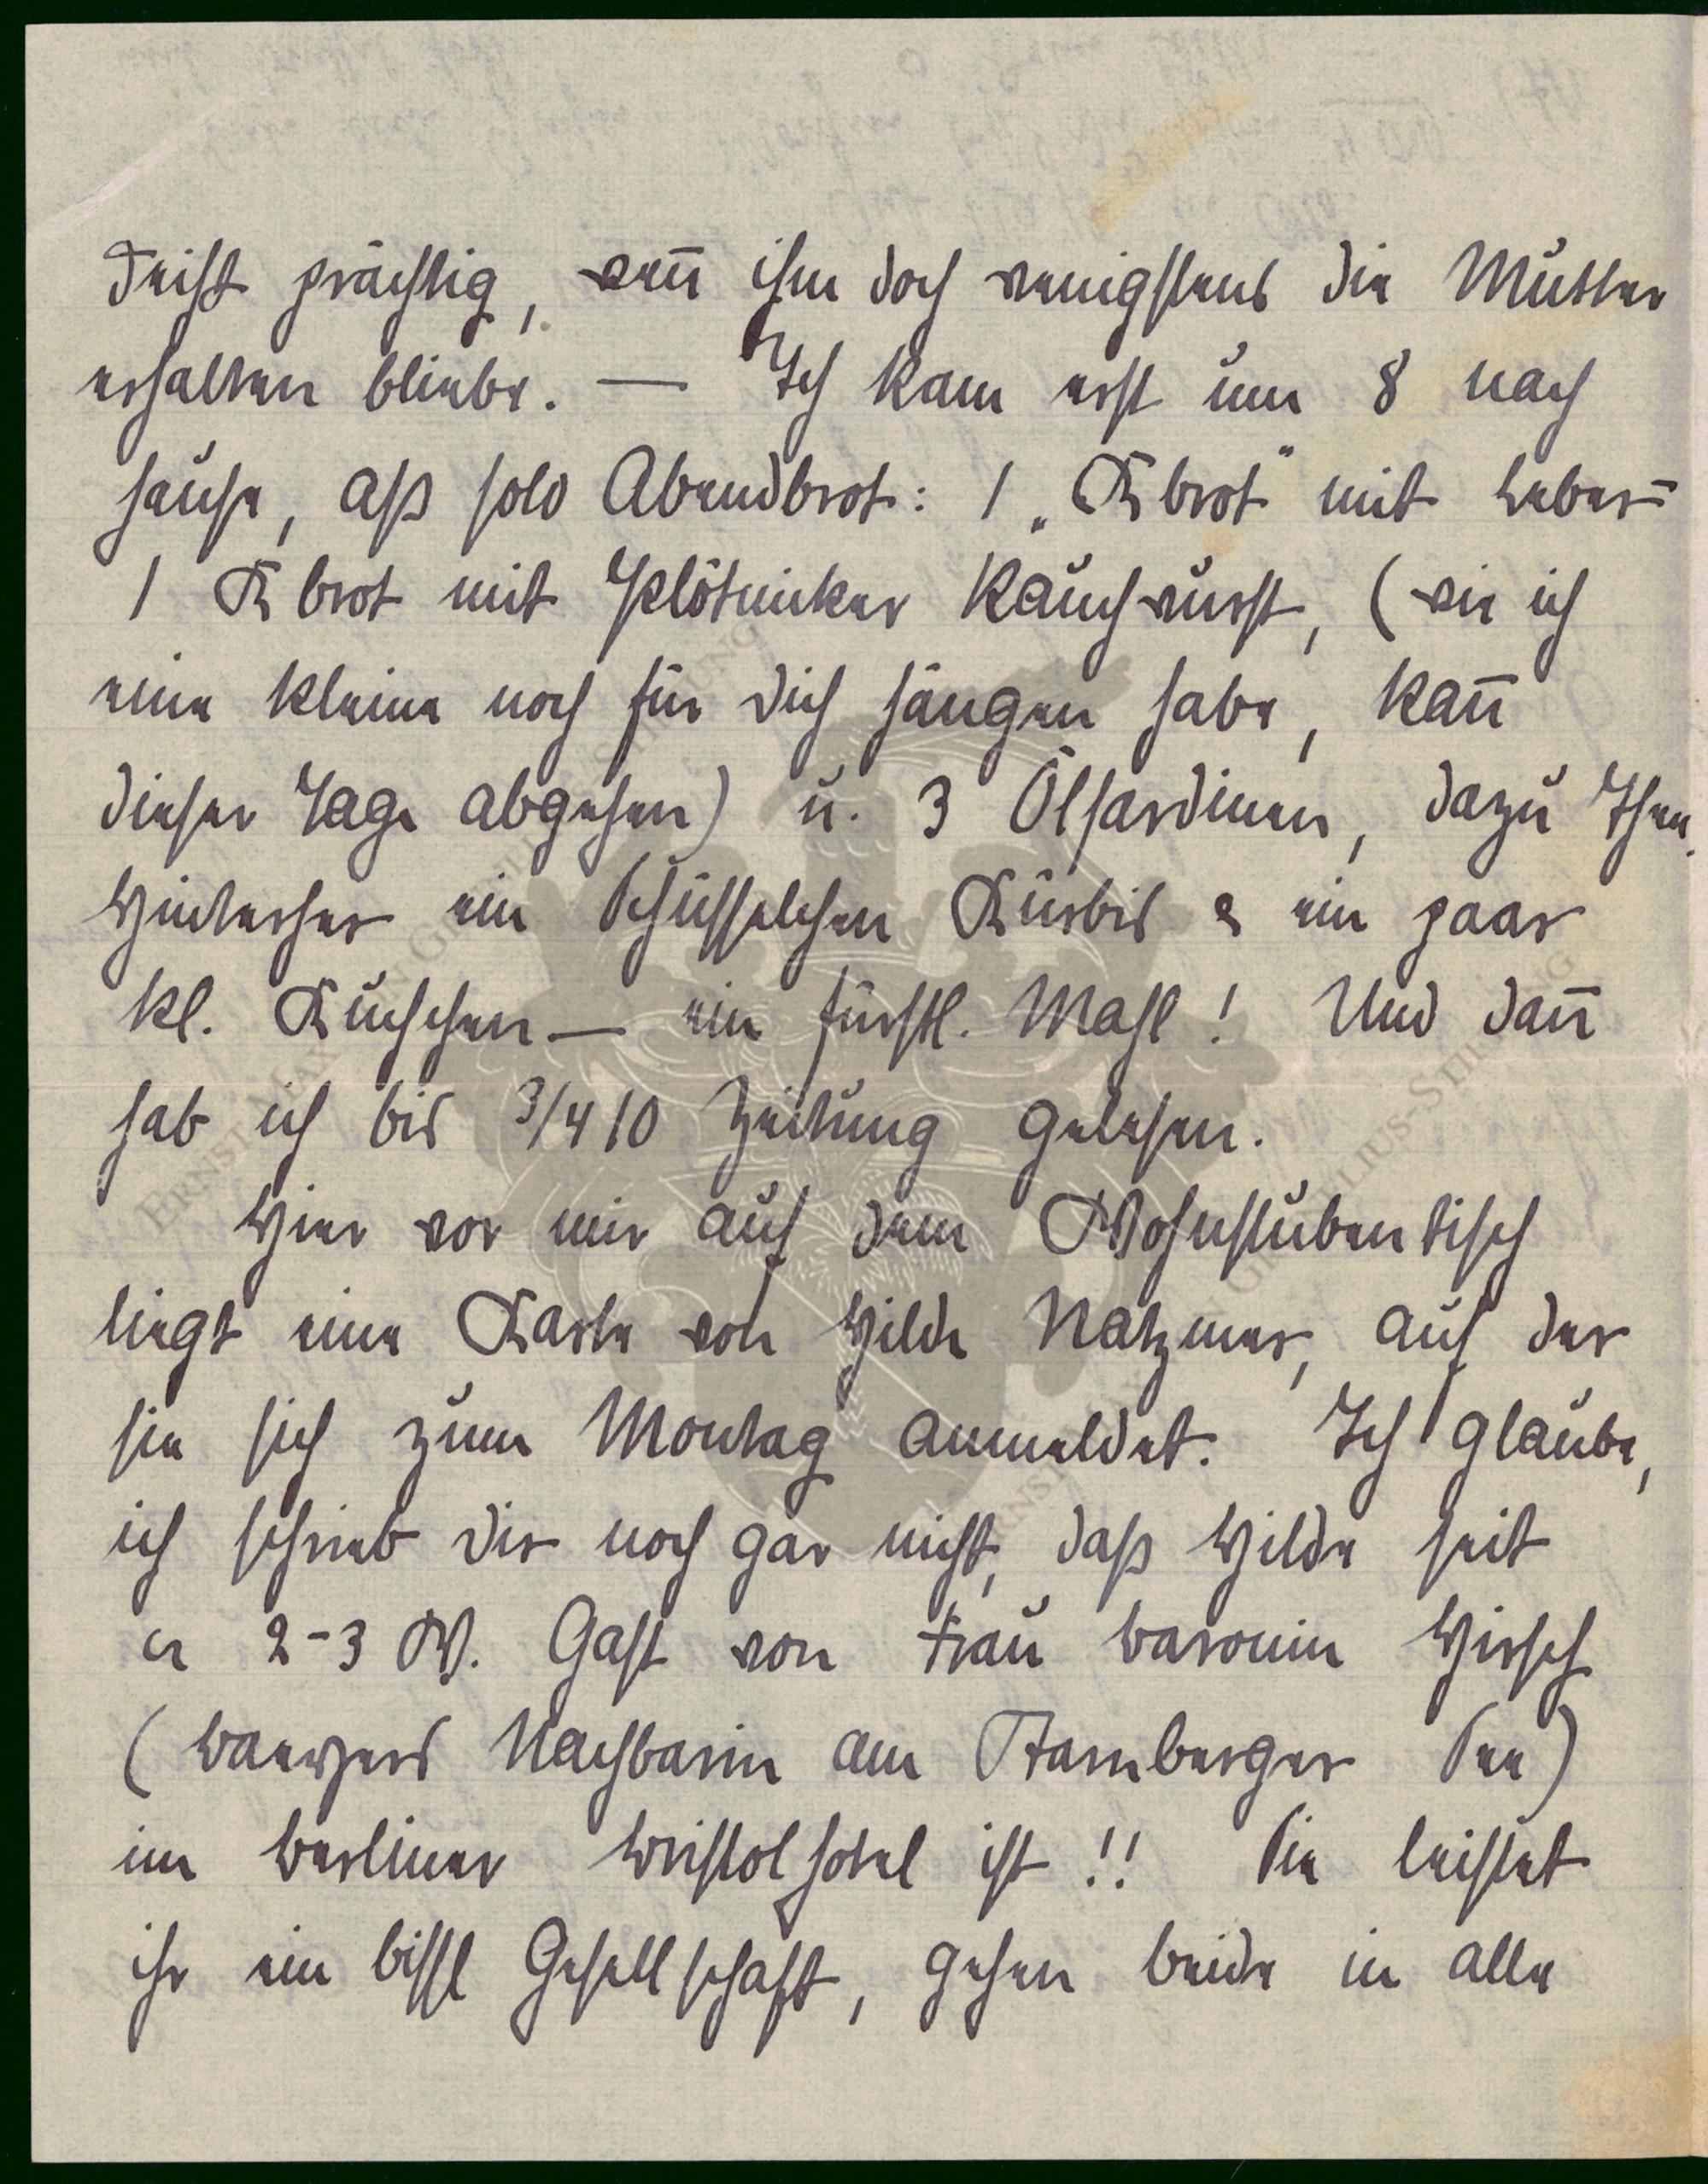 deist prächtig, wen̄ ihm doch wenigstens die Mutter
erhalten bliebe. — Ich kam erst um 8 nach
hause, aß solo Abendbrot: 1 „Kbrot" mit Leber-
1 Kbrot mit Rauchwurst, (wie ich
eine kleine noch für dich hängen habe, kan̄
dieser Tage abgehen) u. 3 Ölsardinen, dazu Thee.
Hinterher ein Schüsselchen Kürbis & ein paar
kl. Kuchchen — ein fürstl. Mahl! Und dan̄
hab ich bis 3/4 10 Zeitung gelesen.
Hier vor mir auf dem Wohnstubentisch
liegt eine Karte von Hilde Natzmer, auf der
sie sich zum Montag anmeldet. Ich glaube,
ich schrieb dir noch gar nicht, daß Hilde seit
ca 2-3 W. Gast von Frau Baronin Hirsch
(Nachbarin am Starnberger See)
im Berliner Bristolhotel ist!! Sie leistet
ihr ein bissl Gesellschaft, gehen beide in alle
ERNST VON GERGELIUS-STIFTUNG